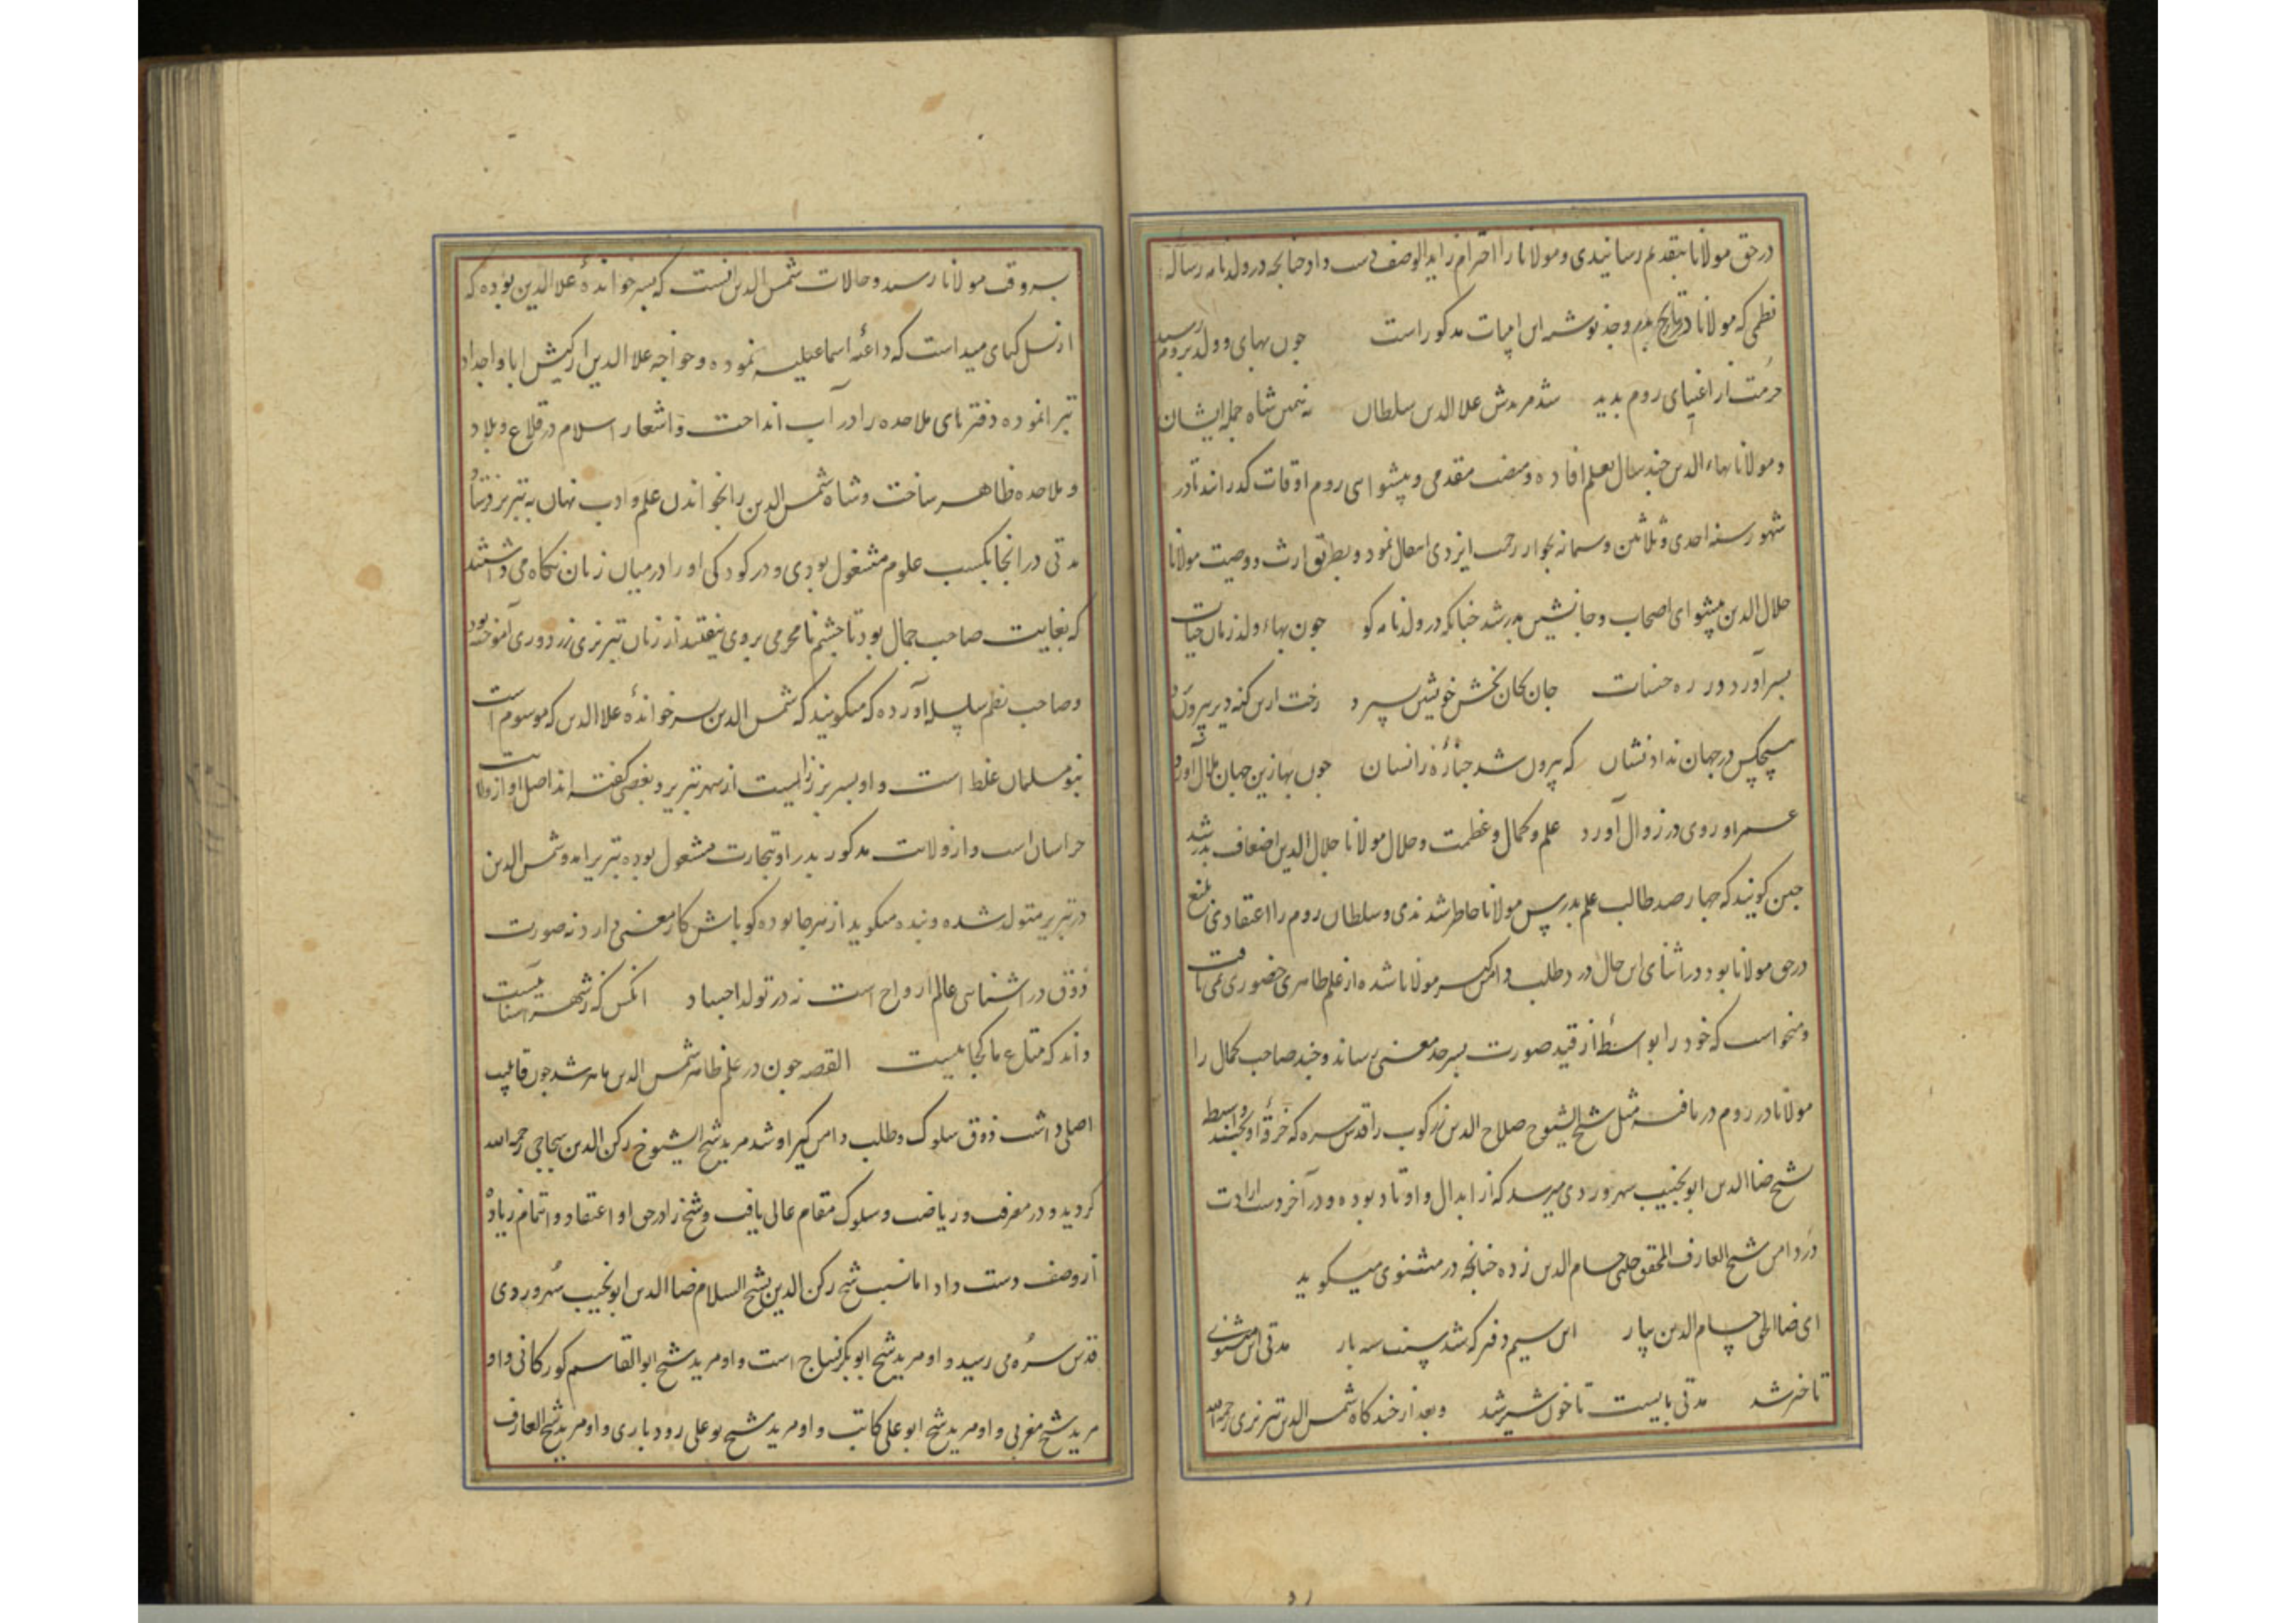 در حق مولانا بتقدیم رسانیدی و مولانا را احترام زاید الوصف دست داد چنانچه در ولدنامه رساله
نظمی که مولانا در تاریخ پدر و جد نوشته این ابیات مذکور است چون بهای ولد بروم رسید
حرمت از اغنیای روم بدید شد مریدش علاالدین سلطان نه همین شاه جمله ایشان
و مولانا بهاء الدین چند سال بعلم افاده و منصب مقدمی و پیشوای روم اوقات گذرانید تا در
شهور سنه احدی و ثلاثین و ستمائه بجوار رحمت ایزدی انتقال نمود و بطریق ارث و وصیت مولانا
جلال الدین پیشوای اصحاب و جانشین پدر شد چنانکه در ولدنامه کو چون بهاء ولد زمان حیات
بسر آورد در ره حسنات جان بجان بخش خویش سپرد رخت ازین کهنه دیر بیرون
هیچکس در جهان نداد نشان که بیرون شد جنازه زانسان چون بها زین جهان ملال آورد
عمر او روی در زوال آورد علم و کمال و عظمت و جلال مولانا جلال الدین اضعاف پدر شد
چنین کویند که چهار صد طالب علم بدرس مولانا حاضر شدندی و سلطان روم را اعتقادی بلیغ
در حق مولانا بود در اثنای این حال درد طلب دامنکیر مولانا شده از علم ظاهری حضوری نمی یافت
و میخواست که خود را بواسطه از قید صورت بسرحد معنی رساند و چند صاحب کمال را
مولانا در روم دریافت مثل شیخ الشیوخ صلاح الدین زرکوب را قدس سره که خرقه او بچند واسطه
شیخ ضیا الدین ابو نجیب سهروردی میرسد که از ابدال و اوتاد بوده و در آخر دست ارادت
در دامن شیخ العارف المحقق چلبی حسام الدین زده چنانچه در مثنوی میکوید
ای ضیاالحق حسام الدین بیار این سیم دفتر که شد سنت سه بار مدتی این مثنوی
تاخیر شد مدتی بایست تا خون شیر شد و بعد از چند کاه شمس الدین تبریزی رحمه الله
بروقت مولانا رسید و حالات شمس الدین آنست که پسر خوانده علاالدین بوده که
از نسل کیای مید است که داعیه اسماعیلیه نموده و خواجه علاالدین از کیش ابا و اجداد
تبرا نموده دفترهای ملاحده را در آب انداخت و اشعار اسلام در قلاع و بلاد
و ملاحده ظاهر ساخت و شاه شمس الدین را بخواندن علم و ادب نهان به تبریز فرستاد
مدتی در آنجا بکسب علوم مشغول بودی و در کودکی او را در میان زنان نکاه می داشتند
که بغایت صاحب جمال بود تا چشم نامحرمی بروی نیفتد از زنان تبریزی زردوزی آموخته بود
و صاحب نظم سلسله آورده که میکویند که شمس الدین پسر خوانده علاالدین که موسوم است
بنو مسلمان غلط است و او پسر بزازیست از شهر تبریز و بعضی کفته اند اصل او از ولایت
خراسان است و از ولایت مذکور پدر او بتجارت مشغول بوده تبریز امد و شمس الدین
در تبریز متولد شده و بنده میکوید از هر جا بوده کو باش کار معنی دارد نه صورت
ذوق در آشنایی عالم ارواح است نه در تولد اجساد انکس که ز شهر آشناییست
داند که متاع ما کجاییست القصه چون در علم ظاهر شمس الدین ماهر شد چون قابلیت
اصلی داشت ذوق سلوک و طلب دامن کیر او شد مرید شیخ الشیوخ رکن الدین سجاجی رحمه الله
کردید و در معرفت و ریاضت و سلوک مقام عالی یافت و شیخ را در حق او اعتقاد و اهتمام زیاد
از وصف دست داد اما نسب شیخ رکن الدین بشیخ السلام ضیا الدین ابو نجیب سهروردی
قدس سره می رسید و او مرید شیخ ابوبکر نساج است و او مرید شیخ ابو القاسم کورکانی و او
مرید شیخ مغربی و او مرید شیخ ابو علی کاتب و او مرید شیخ بو علی رودباری و او مرید شیخ العارف